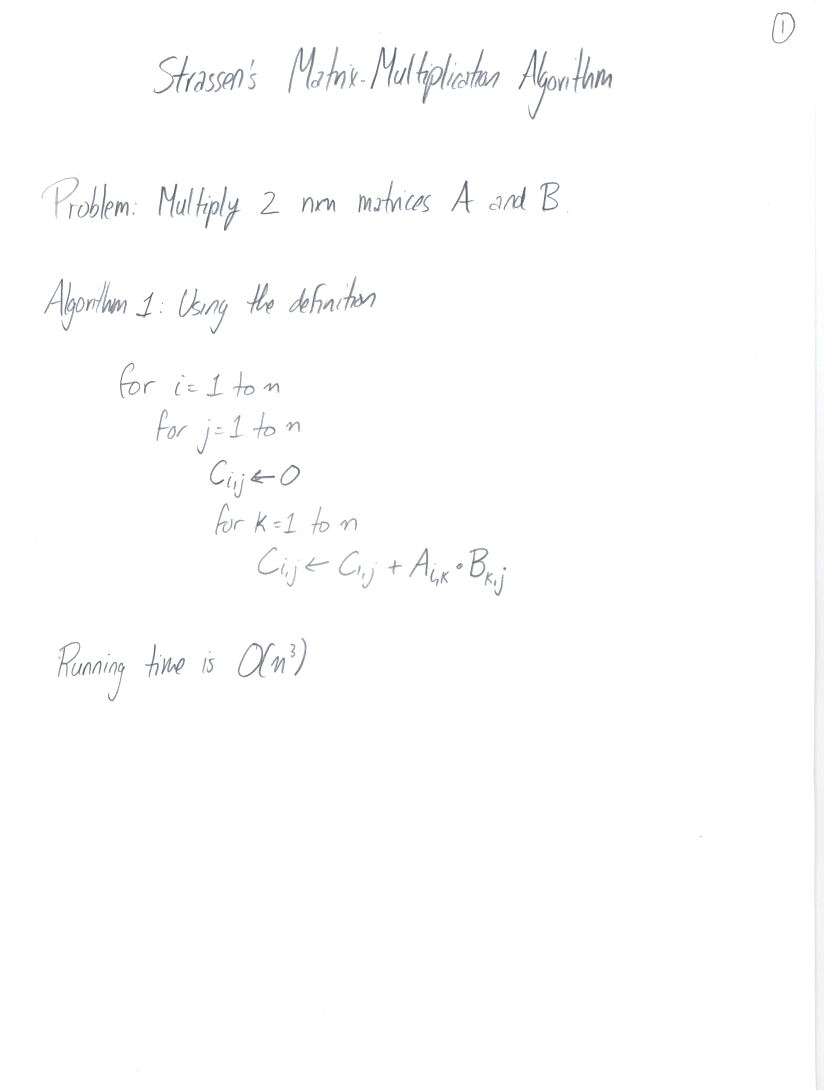 ①
Strassen's Matrix-Multiplication Algorithm
Problem: Multiply 2 nxn matrices A and B.
Algorithm 1: Using the definition
for i=1 to n
for j=1 to n
Ci,j ← 0
for k=1 to n
Ci,j ← Ci,j + Ai,k • Bk,j
Running time is O(n³)